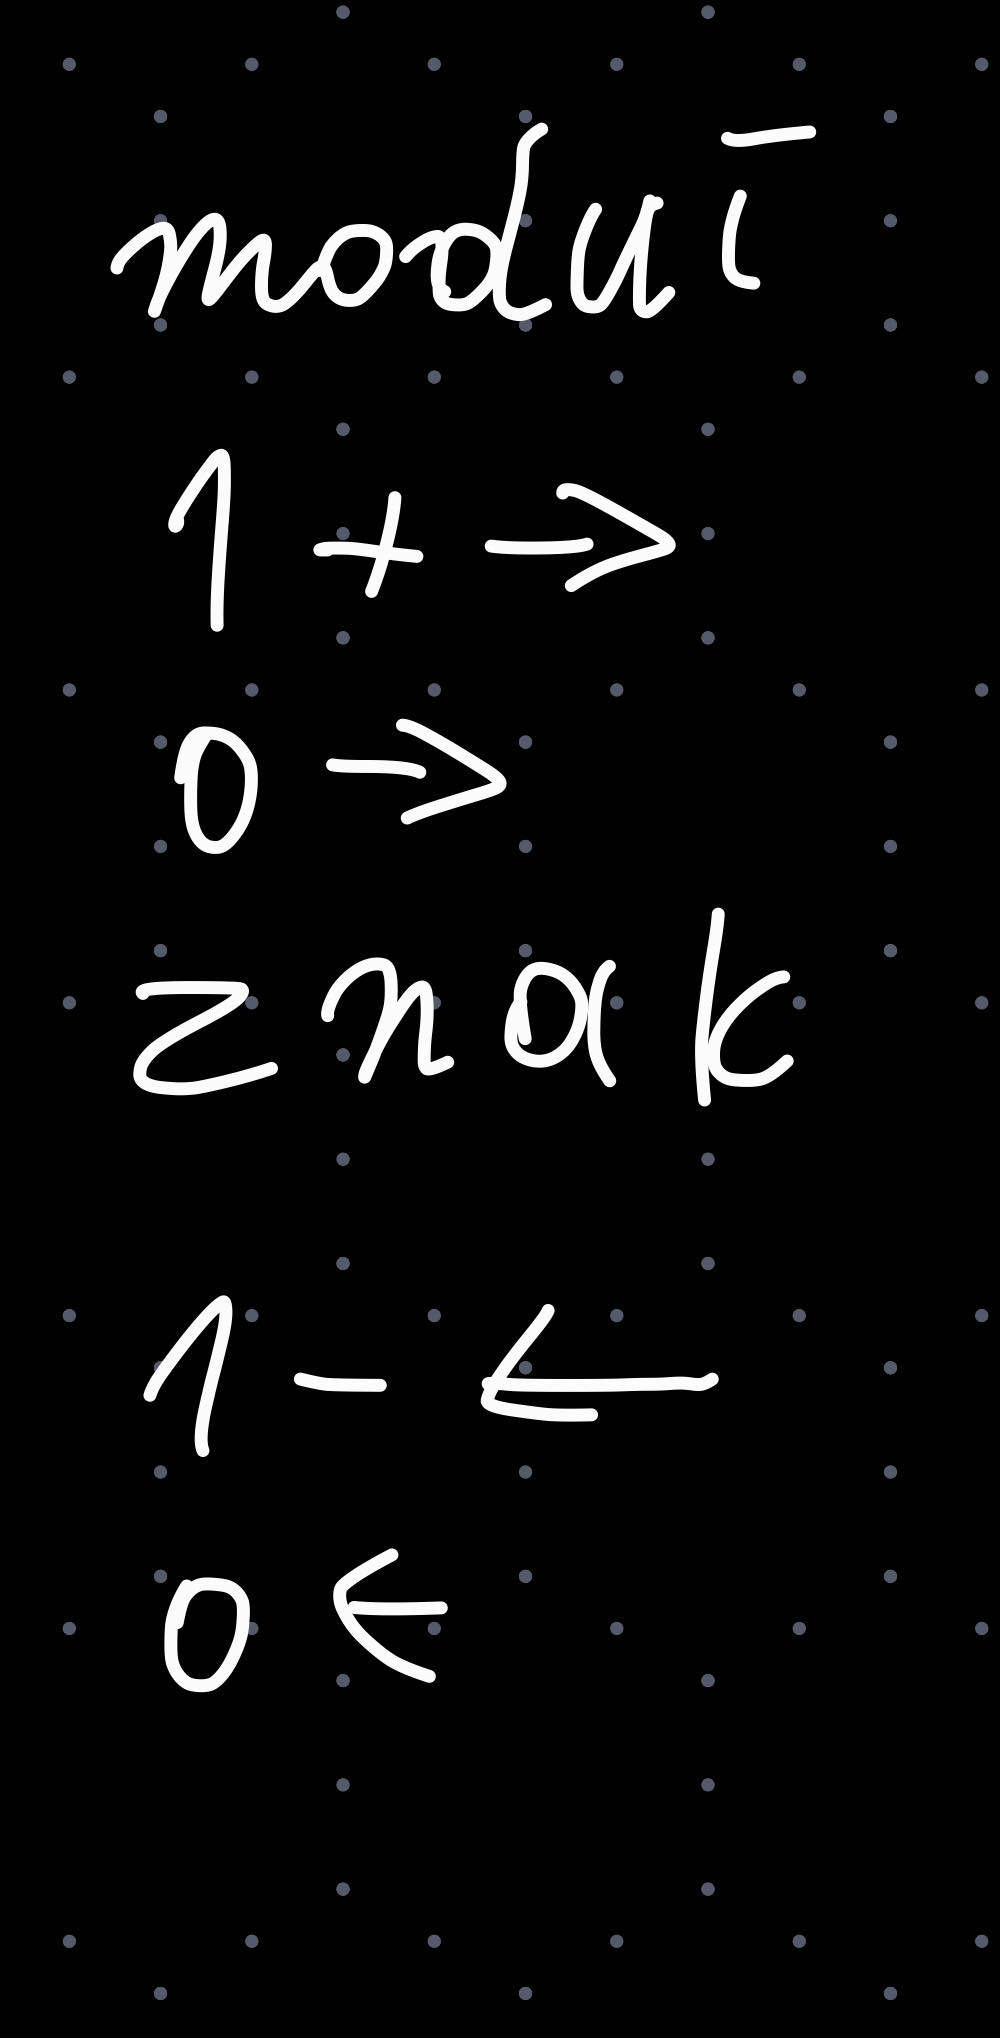 moduī
1 + →
0 →
znak
1 - ←
0 ←